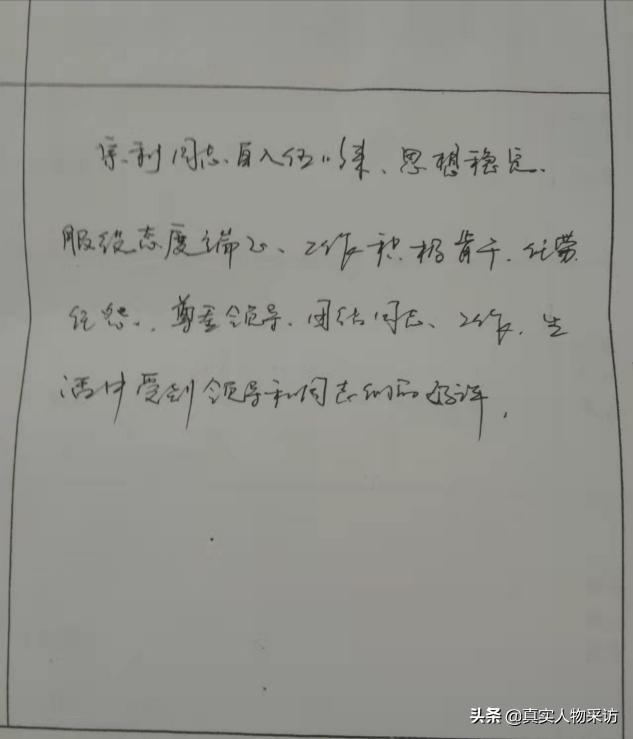 利同志、自入伍以来、思想稳定、
服役态度端正、工作积极肯干、任劳
任怨、尊重领导、团结同志、工作、生
活中受到领导和同志们的好评,
头条 @真实人物采访